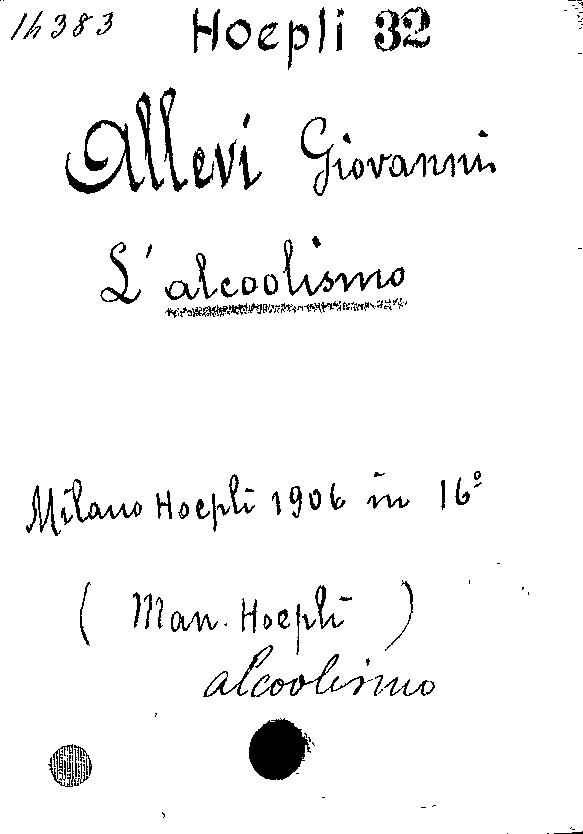 14383
Hoepli 32
Allevi Giovanni
L'alcoolismo
Milano Hoepli 1906 in 16º
( Man. Hoepli )
alcoolismo